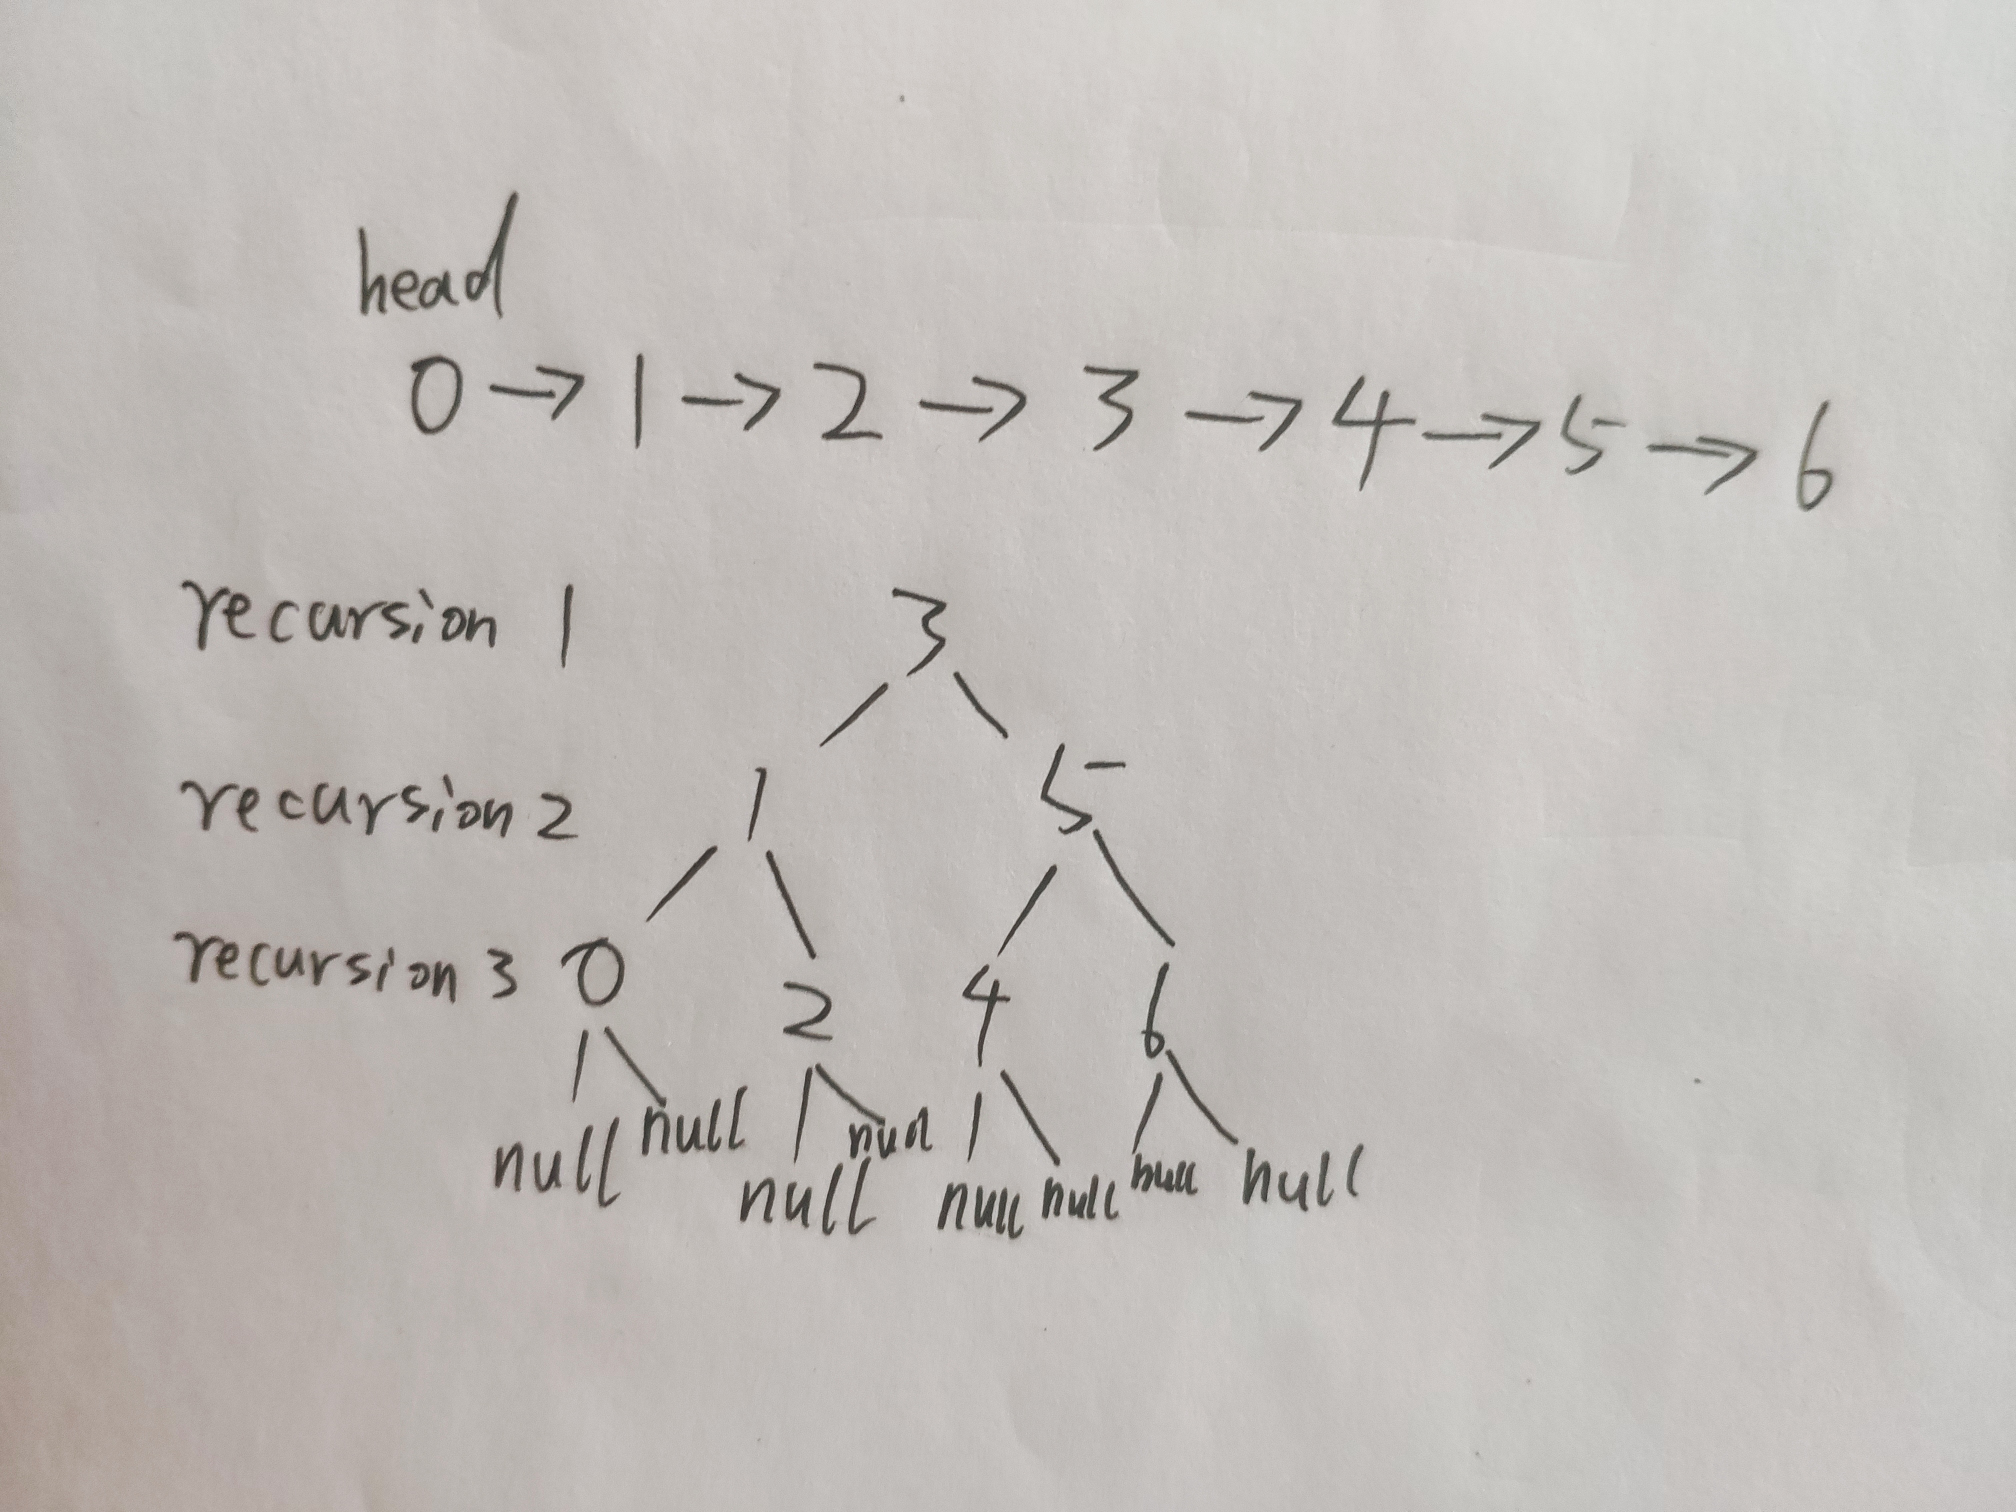 head
0 → 1 → 2 → 3 → 4 → 5 → 6
recursion 1 3
recursion 2 1 5
recursion 3 0 2 4 6
null null null null null null null null